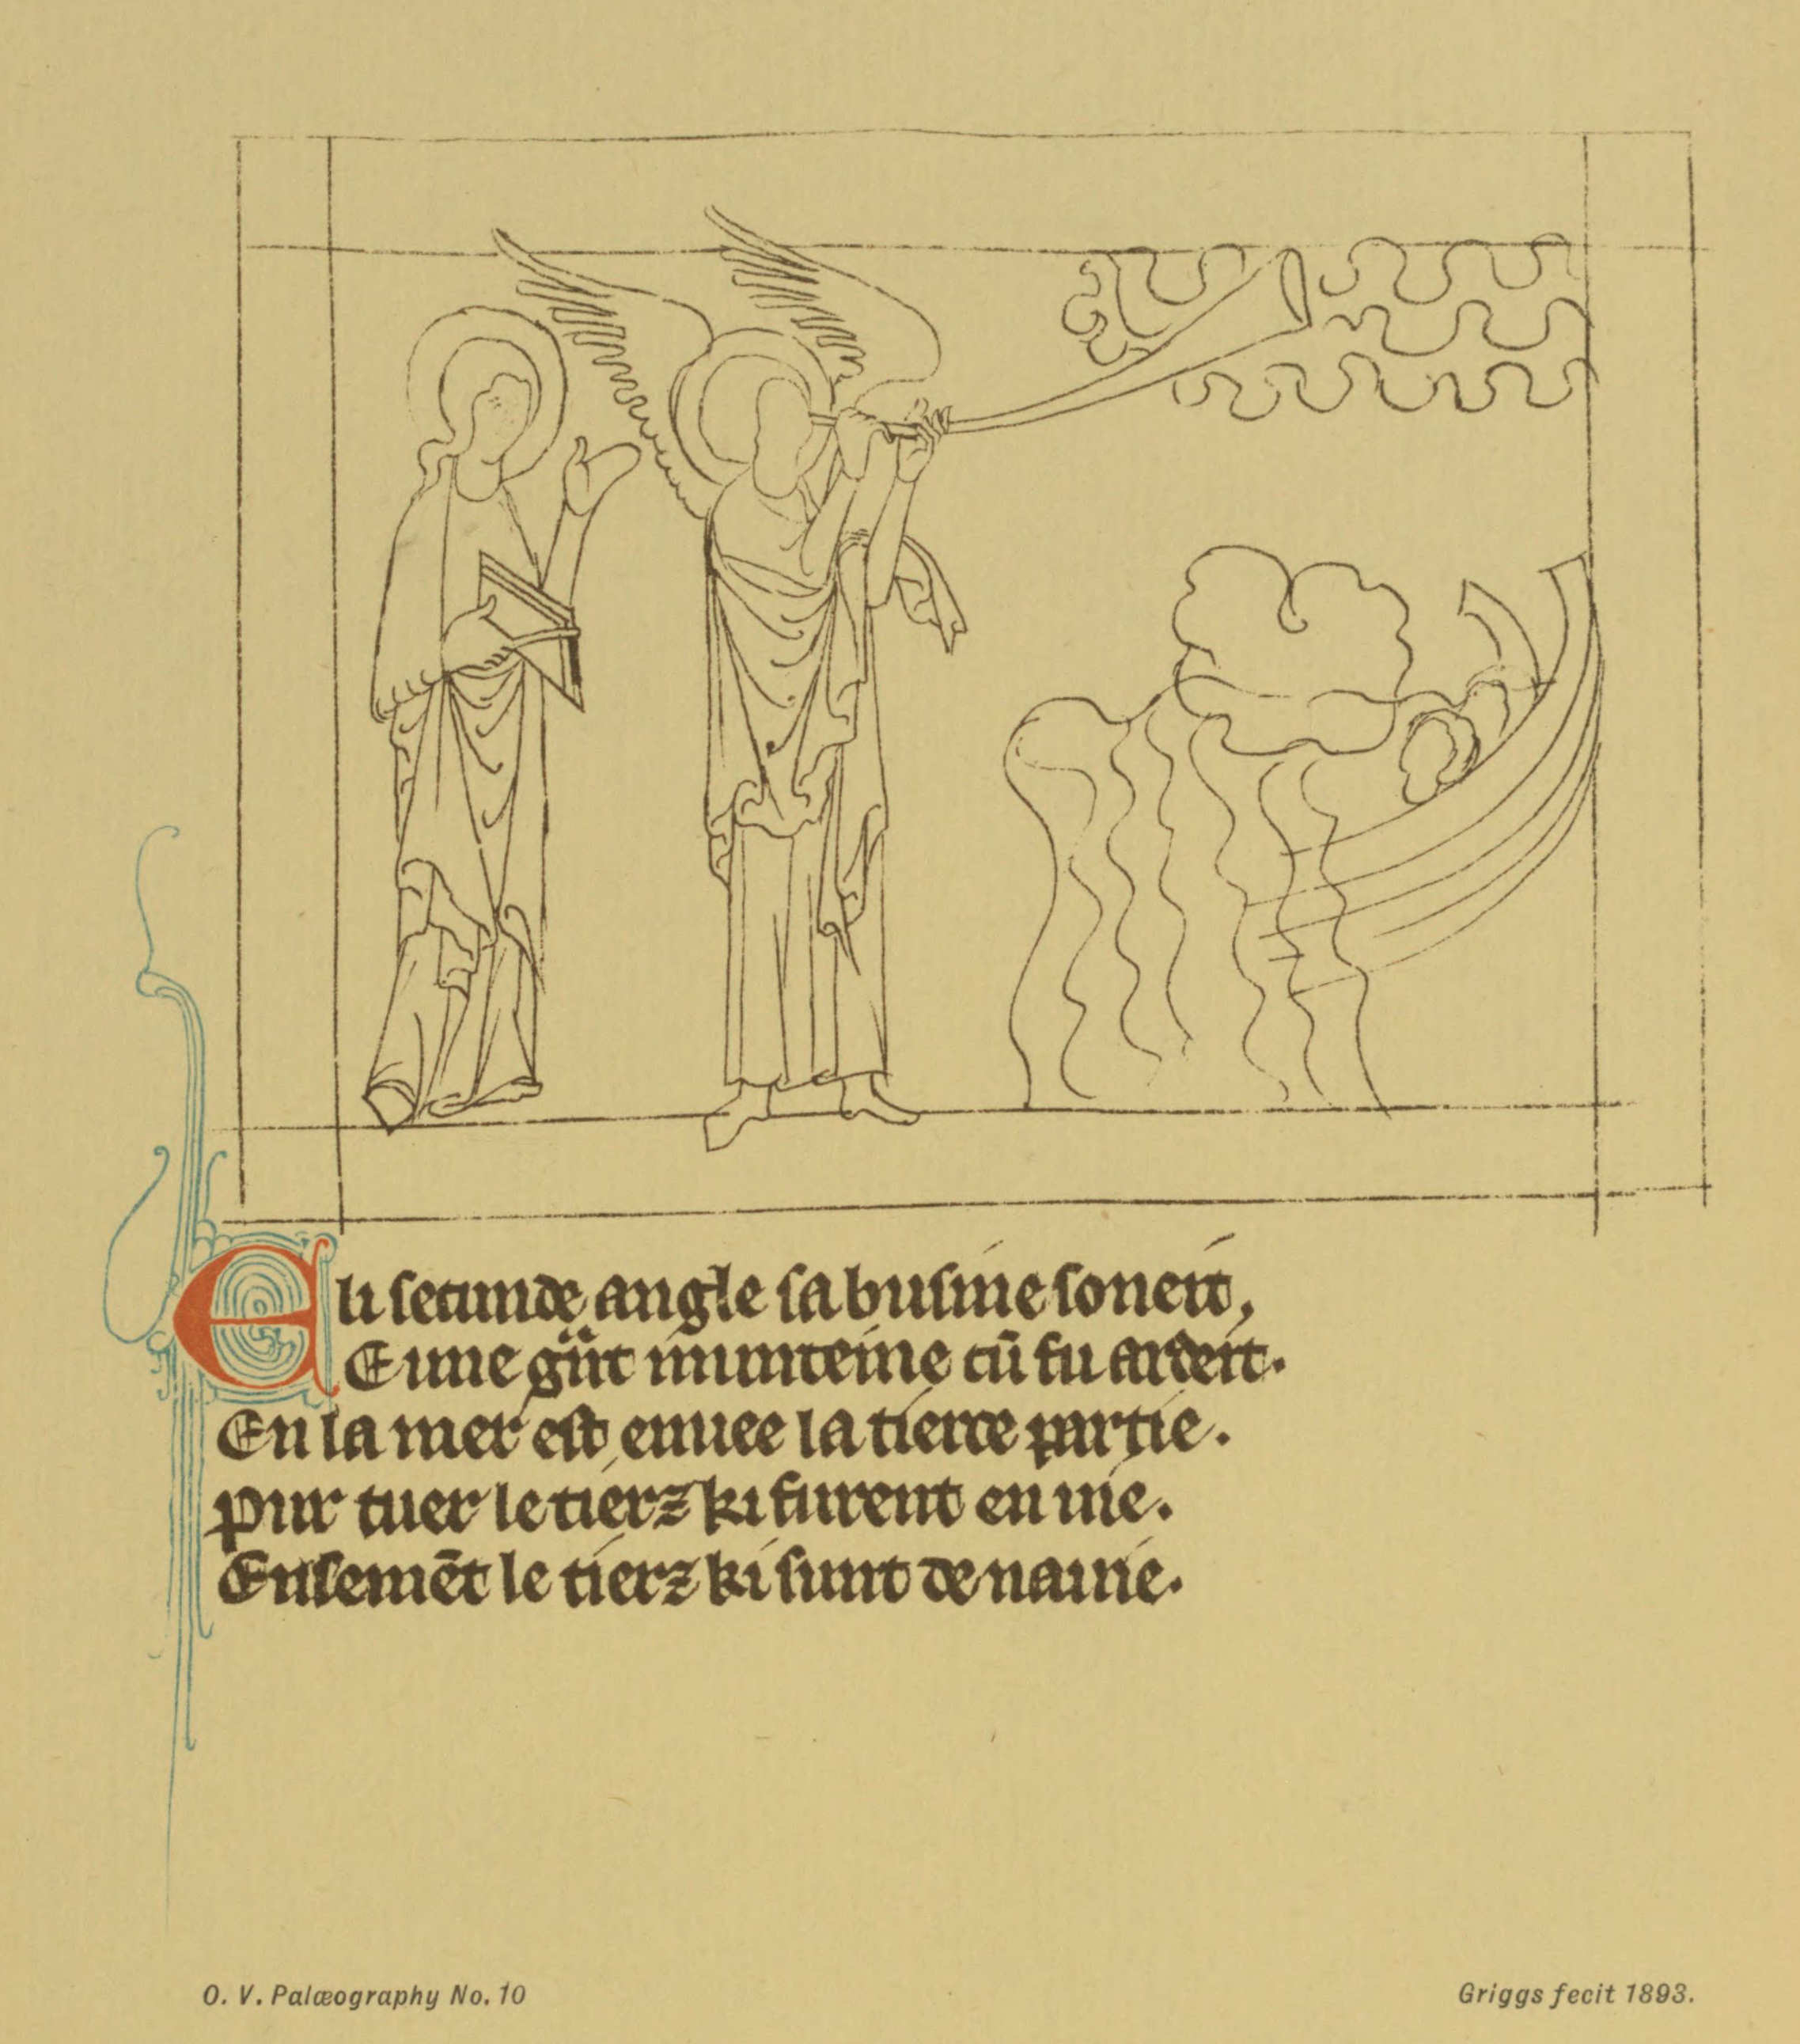 E li secunde angle sa busine soneit,
E une g̃nt munteine cū fu ardeit.
En la mer est enuee la tierce partie.
Pur tuer le tierz ki furent en uie.
Ensemēt le tierz ki sunt de nauie.
O. V. Palæography No. 10
Griggs fecit 1893.